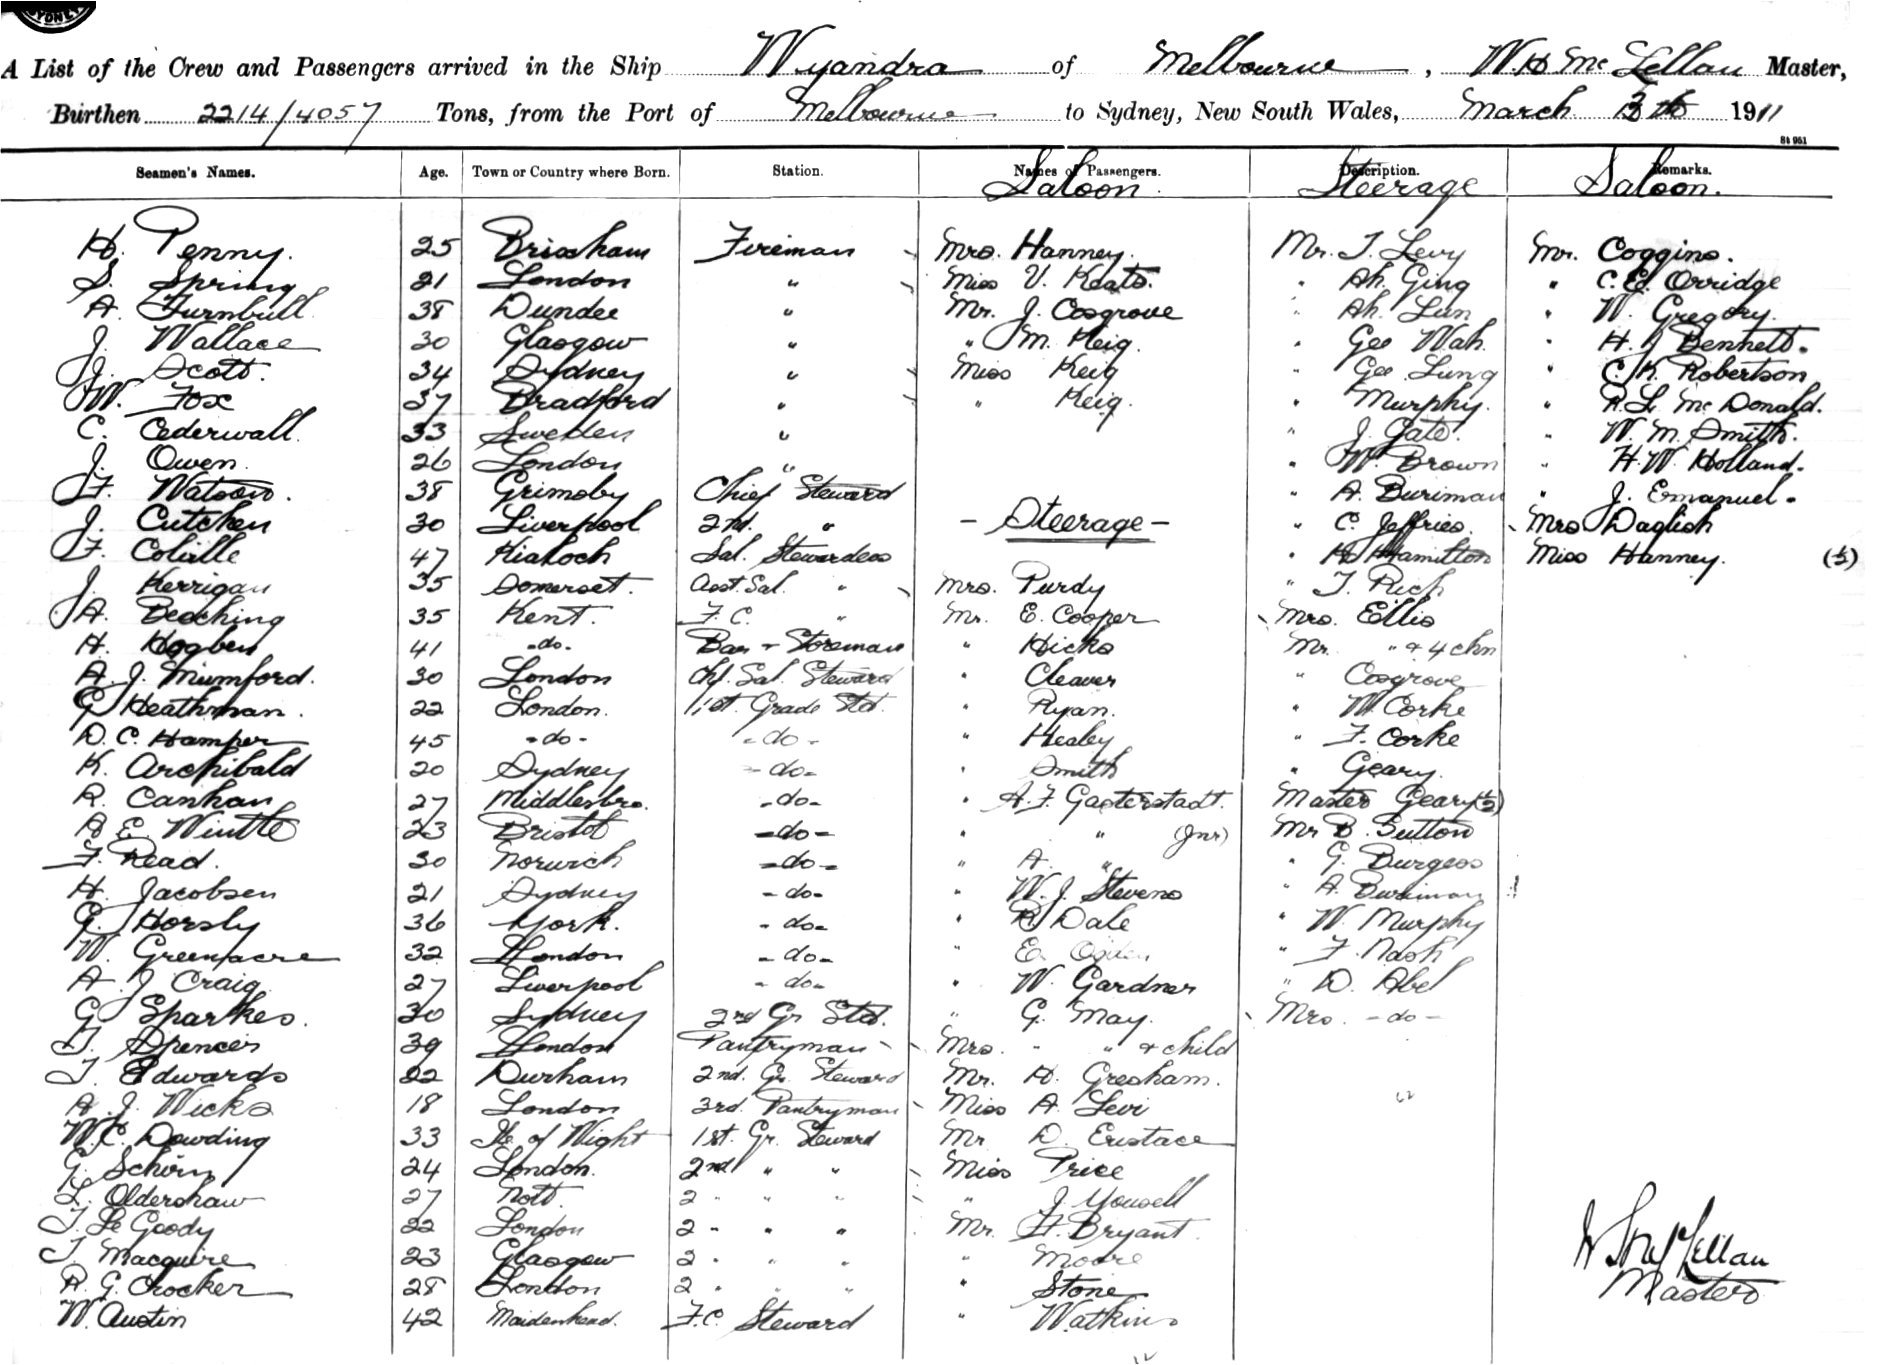 SYDNEY
A List of the Crew and Passengers arrived in the Ship Wyandra of Melbourne, W. H. Mc Lellan Master,
Burthen 2214/4057 Tons, from the Port of Melbourne to Sydney, New South Wales, March 1911
8t 961
Seamen's Names. Age. Town or Country where Born. Station. Names of Passengers. Description. Remarks.
Saloon. Steerage Saloon.
H. Penny. 25 Brixham Fireman Mrs. Hanney. Mr. T. Levy Mr. Coggins.
S. Spring 21 London " Miss V. Keats. " Ah. Ging " C. Ed. Orridge
A. Turnbull. 38 Dundee " Mr. J. Cosgrove " Ah. Lun " W. Gregory.
J. Wallace 30 Glasgow " " M. Keig. " Gee Wah. " H. J. Bennett.
J. Scott. 34 Sydney " Miss Keig " Gee Lung " C. K. Robertson
W. Fox 37 Bradford " " Keig. " Murphy. " R. L. Mc Donald.
C. Cederwall. 33 Sweden " " J. Gate. " W. M. Smith.
J. Owen. 26 London " " W. Brown " H. W. Holland.
F. Watson. 38 Grimsby Chief Steward " A. Buriman " J. Emanuel.
J. Cutchen 30 Liverpool 2nd. " - Steerage - " C. Jeffries. Mrs Daglish
F. Colville 47 Kialoch Sal. Stewardess " H. Hamilton Miss Hanney. (½)
J. Kerrigan 35 Somerset. Asst. Sal. " Mrs. Purdy " T. Rich
A. Beaching 35 Kent. F.C. " Mr. E. Cooper Mrs. Ellis
H. Hogben 41 -do- Bar + Storeman " Hicks Mr. " + 4 chn
A. J. Mumford. 30 London Chf. Sal. Steward " Cleaver " Cosgrove
G. Heathman. 22 London. 1st. Grade Std. " Ryan. " W. Corke
D. C. Hamper 45 -do- -do- " Healey " F. Corke
K. Archibald 20 Sydney -do- " Smith " Geary.
R. Canhan 27 Middlesbro. -do- " A. F. Gasterstadt. Master Geary (½)
A. E. Wintle 23 Bristol -do- " " (Jnr) Mr B. Sutton
F. Read. 30 Norwich -do- " A. " " G. Burgess
H. Jacobsen 21 Sydney -do- " W. J. Stevens " A. Buriman
G. Horsly 36 York. -do- " R. Dale " W. Murphy
W. Greenacre 32 London -do- " E. Ogden " F. Nash
A. J. Craig 27 Liverpool -do- " W. Gardner " D. Abel
G. Sparkes. 30 Sydney 2nd Gr Std. " G. May. Mrs. -do-
T. Spencer 39 London Pantryman Mrs. " " + child
T. Edwards 22 Durham 2nd. Gr. Steward Mr. H. Gresham.
A. J. Wicks 18 London 3rd. Pantryman Miss A. Levi
W. C. Dowding 33 Ile of Wight 1st. Gr. Steward Mr D. Eustace
G. Schön 24 London. 2nd " " Miss Price
L. Oldershaw 27 Nott. 2 " " " " J. Yousell
T. Le Goody 22 London 2 " " " Mr. F. Bryant.
T. Macquire 23 Glasgow 2 " " " " Moore
R. G. Crocker 28 London 2 " " " " Stone
W. Austin 42 Maidenhead. F.C. Steward " Watkins
Lellan
Master